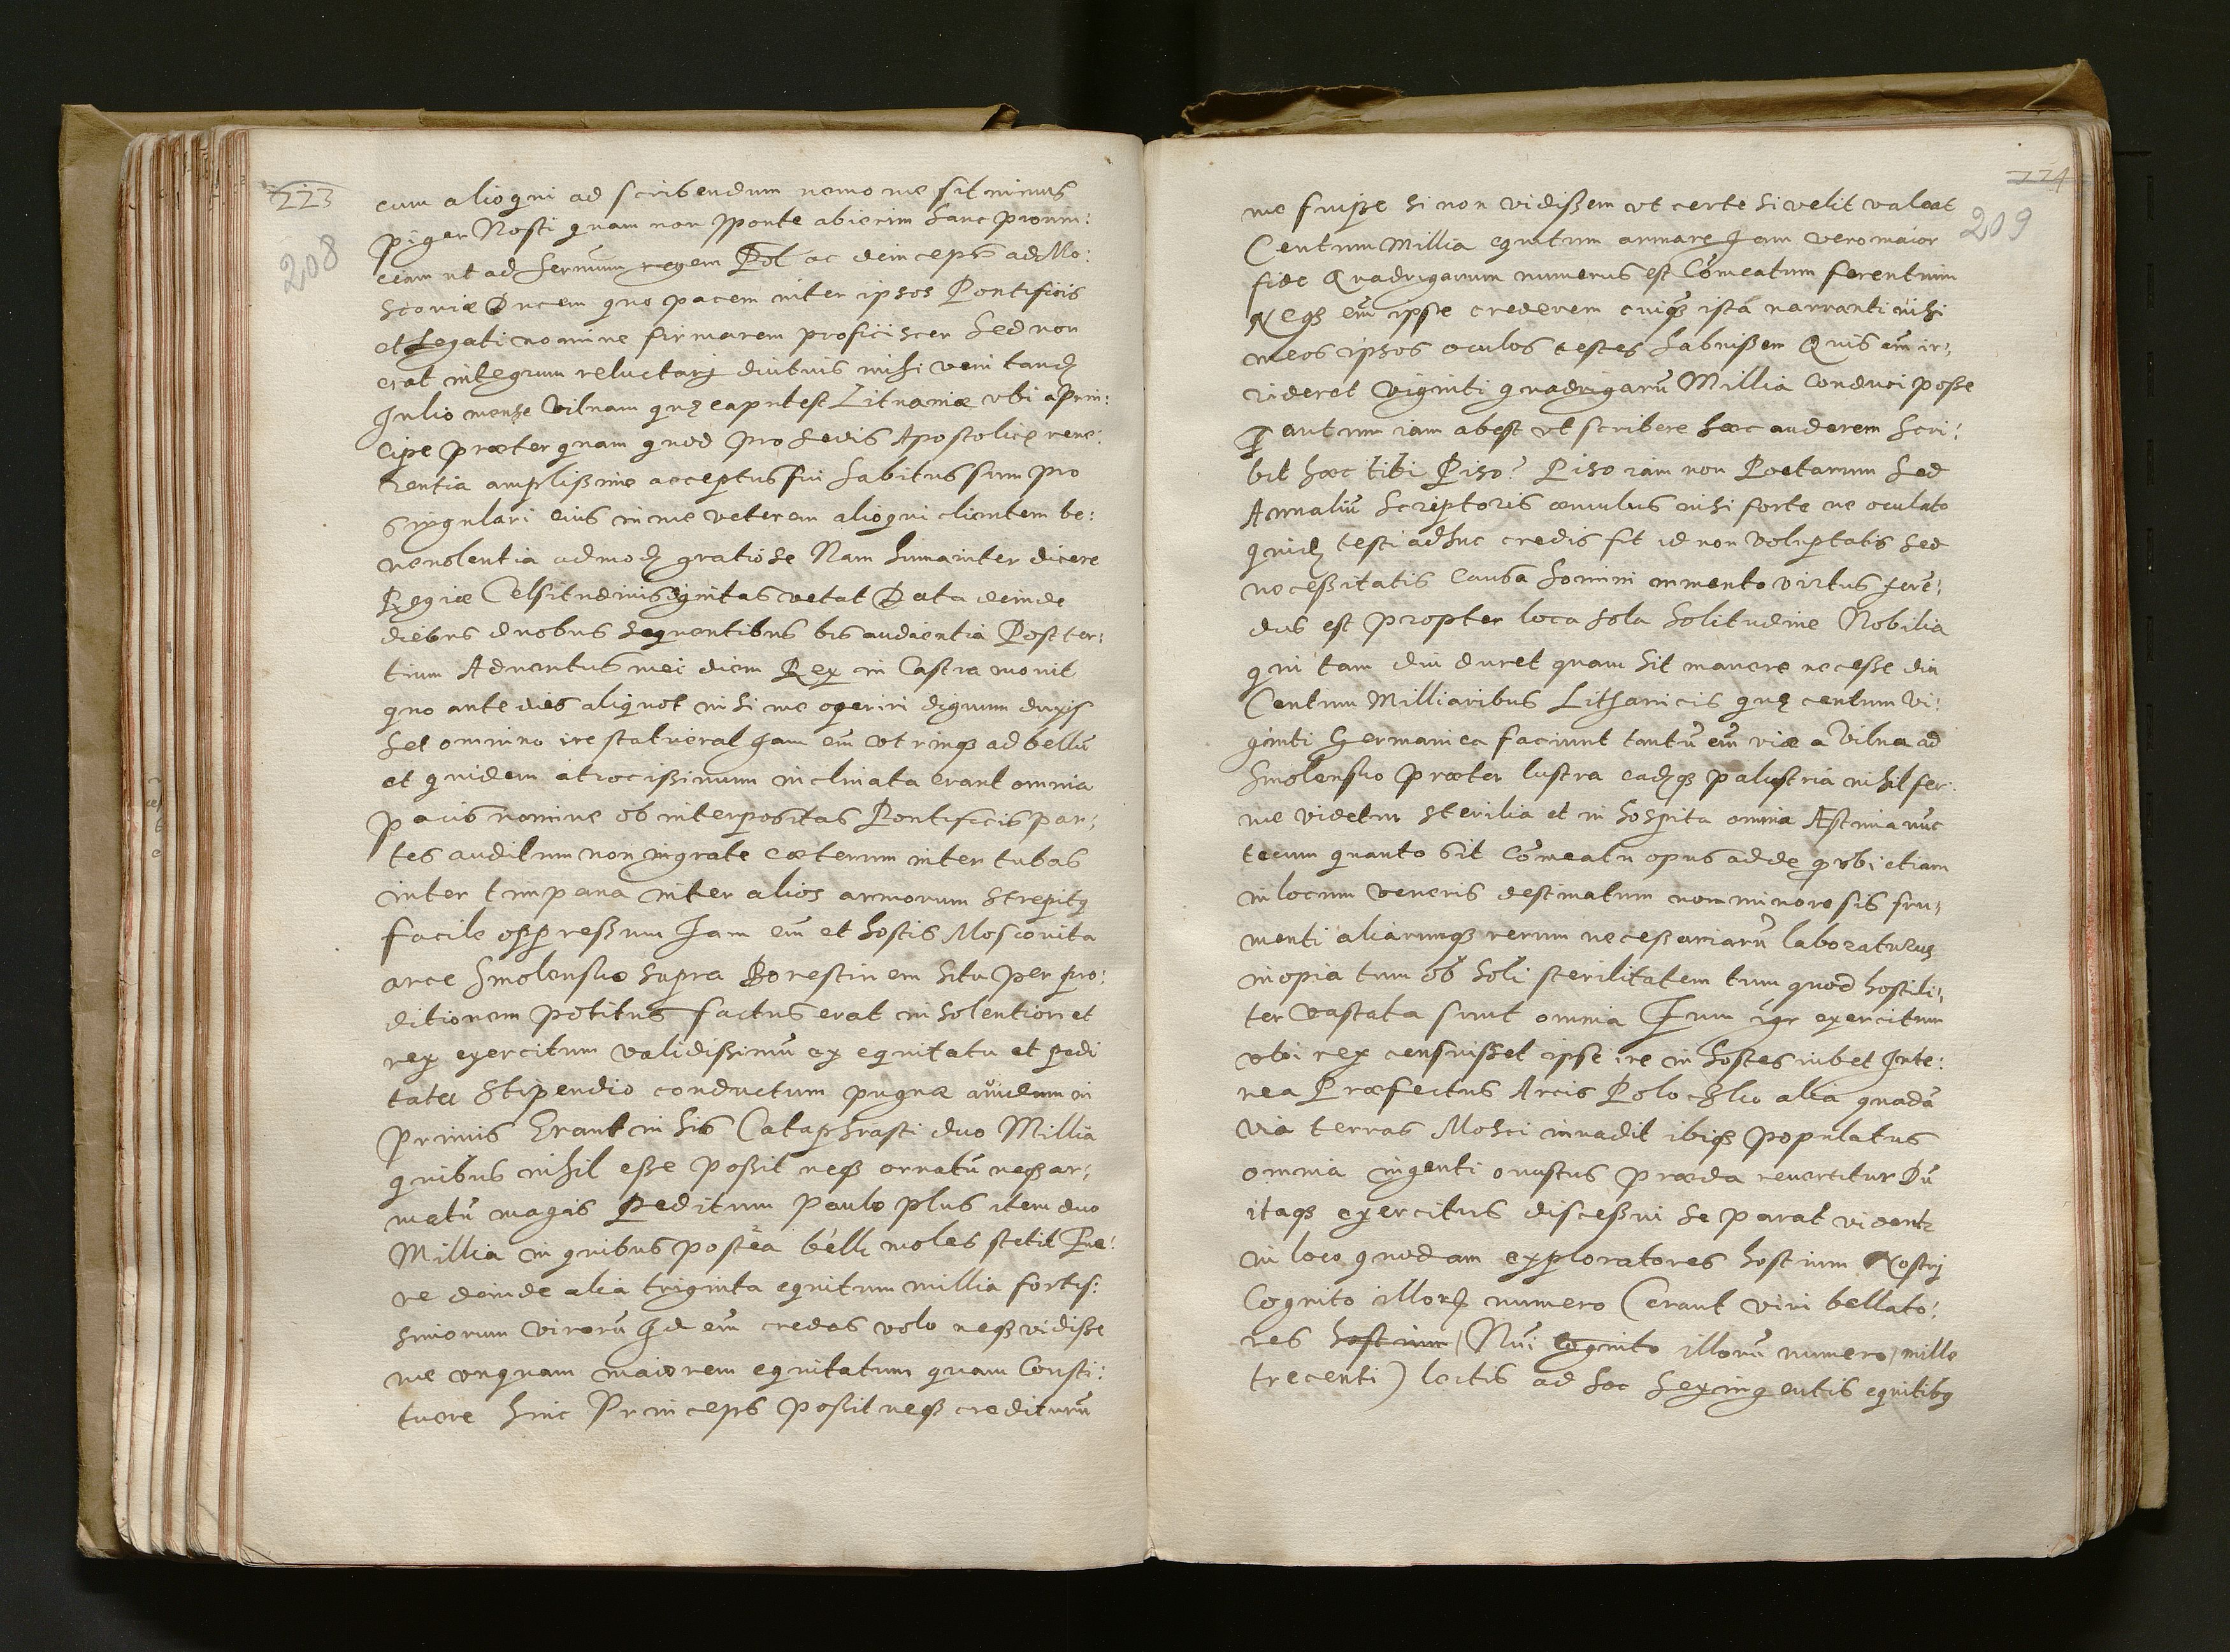 223
208
cum alioqui ad scribendum nemo me sit minus
piger Nosti quam non sponte abierim hanc prouin:
ciam ut ad Sermum regem Pol ac deinceps ad Mo:
scoviæ Ducem quo pacem inter ipsos Pontificis
et Legati nomine firmarem proficiscer Sed non
erat integrum reluctarj diutius mihi veni tandẽ
Julio mense Vilnam quę caput est Lituaniæ ubi a Prin:
cipe præterquam quod pro Sedis Apostolicę reue:
rentia amplissime acceptus fui habitus sum pro
singulari eius in me veterem alioqui clientem be:
nevolentia admodũ gratiose Nam humaniter dicere
Regiæ Celsitudinis dignitas vetat Data deinde
diebus duobus sequentibus bis audientia Post ter:
tium Aduentus mei diem Rex in Castra mouit
quo ante dies aliquot nisi me operiri dignum duxis
set omnino ire statuerat Jam eñ utrinqꝫ ad bellũ
et quidem atrocissimum inclinata erant omnia
Pacis nomine ob interpositas Pontificis par:
tes auditum non ingrate cæterum inter tubas
inter timpana inter alios armorum strepitꝰ
facile oppressum Jam eñ et hostis Moscovita
arce Smolensko supra Borestinem situ per pro:
ditionem potitus factus erat insolentior et
rex exercitum validissimũ ex equitatu et pedi
tatu stipendio conductum pugnæ auidum in
primis Erant in his Cataphracti duo Millia
quibus nihil esse possit neqꝫ ornatũ neqꝫ ar:
matũ magis Peditum Paulo plus item duo
Millia in quibus postea belli moles stetit Fue:
re deinde alia triginta equitum millia fortis:
simorum virorũ Id eñ credas volo neqꝫ vidisse
me unquam maiorem equitatum quam Consti:
tuere hinc Princeps possit neqꝫ crediturũ
224
209
me fuisse si non vidissem ut certe si velit valeat
Centum Millia equitum armare Jam vero maior
fide Quadrigarum numerus est Cõmeatum ferentium
Neqꝫ eñ ipse crederem cuiqꝫ ista narranti nisi
meos ipsos oculos testes habuissem Quis eñ ir:
rideret viginti quadrigarũ Millia Conduci posse
Tantum iam abest ut scribere hæc auderem Scri:
bit hæc tibi Piso? Piso iam non Poetarum sed
Annaliũ Scriptoris æmulus nisi forte ne oculato
quidẽ testi adhuc credis fit id non voluptatis sed
necessitatis causa homini in mento virtus feren:
dus est propter loca sola solitudine Nobilia
qui tam diu duret quam sit manere necesse diu
Centum Milliaribus Lithanicis quę centum vi:
ginti Germanica faciunt tantũ eñ viæ a Vilna ad
Smolensko præter lustra eadẽqꝫ palustria nihil fer:
me videtur sterilia et inhospita omnia Æstima nũc
tecum quanto sit Cõmeatu opus adde qꝫ ubi etiam
in locum veneris destinatum non minore sis fru:
menti aliarumqꝫ rerum necessariarũ laboraturus
inopia tum ob soli sterilitatem tum quod hostili:
ter vastata sunt omnia Tum igr exercitum
ubi rex censuisset ipse ire in hostes iubet Inte:
rea Præfectus Arcis Polochko alia quadã
via terras Mosci inuadit ibiqꝫ populatus
omnia ingenti onustus præda revertitur Dũ
itaqꝫ exercitus discessui se parat vident
in loco quodam exploratores hostium Nostrj
Cognito illorũ numero (erant viri bellato:
res hostium Nũi cognito illorũ numero / mille
trecenti) lectis ad hoc sexingentis equitibꝰ